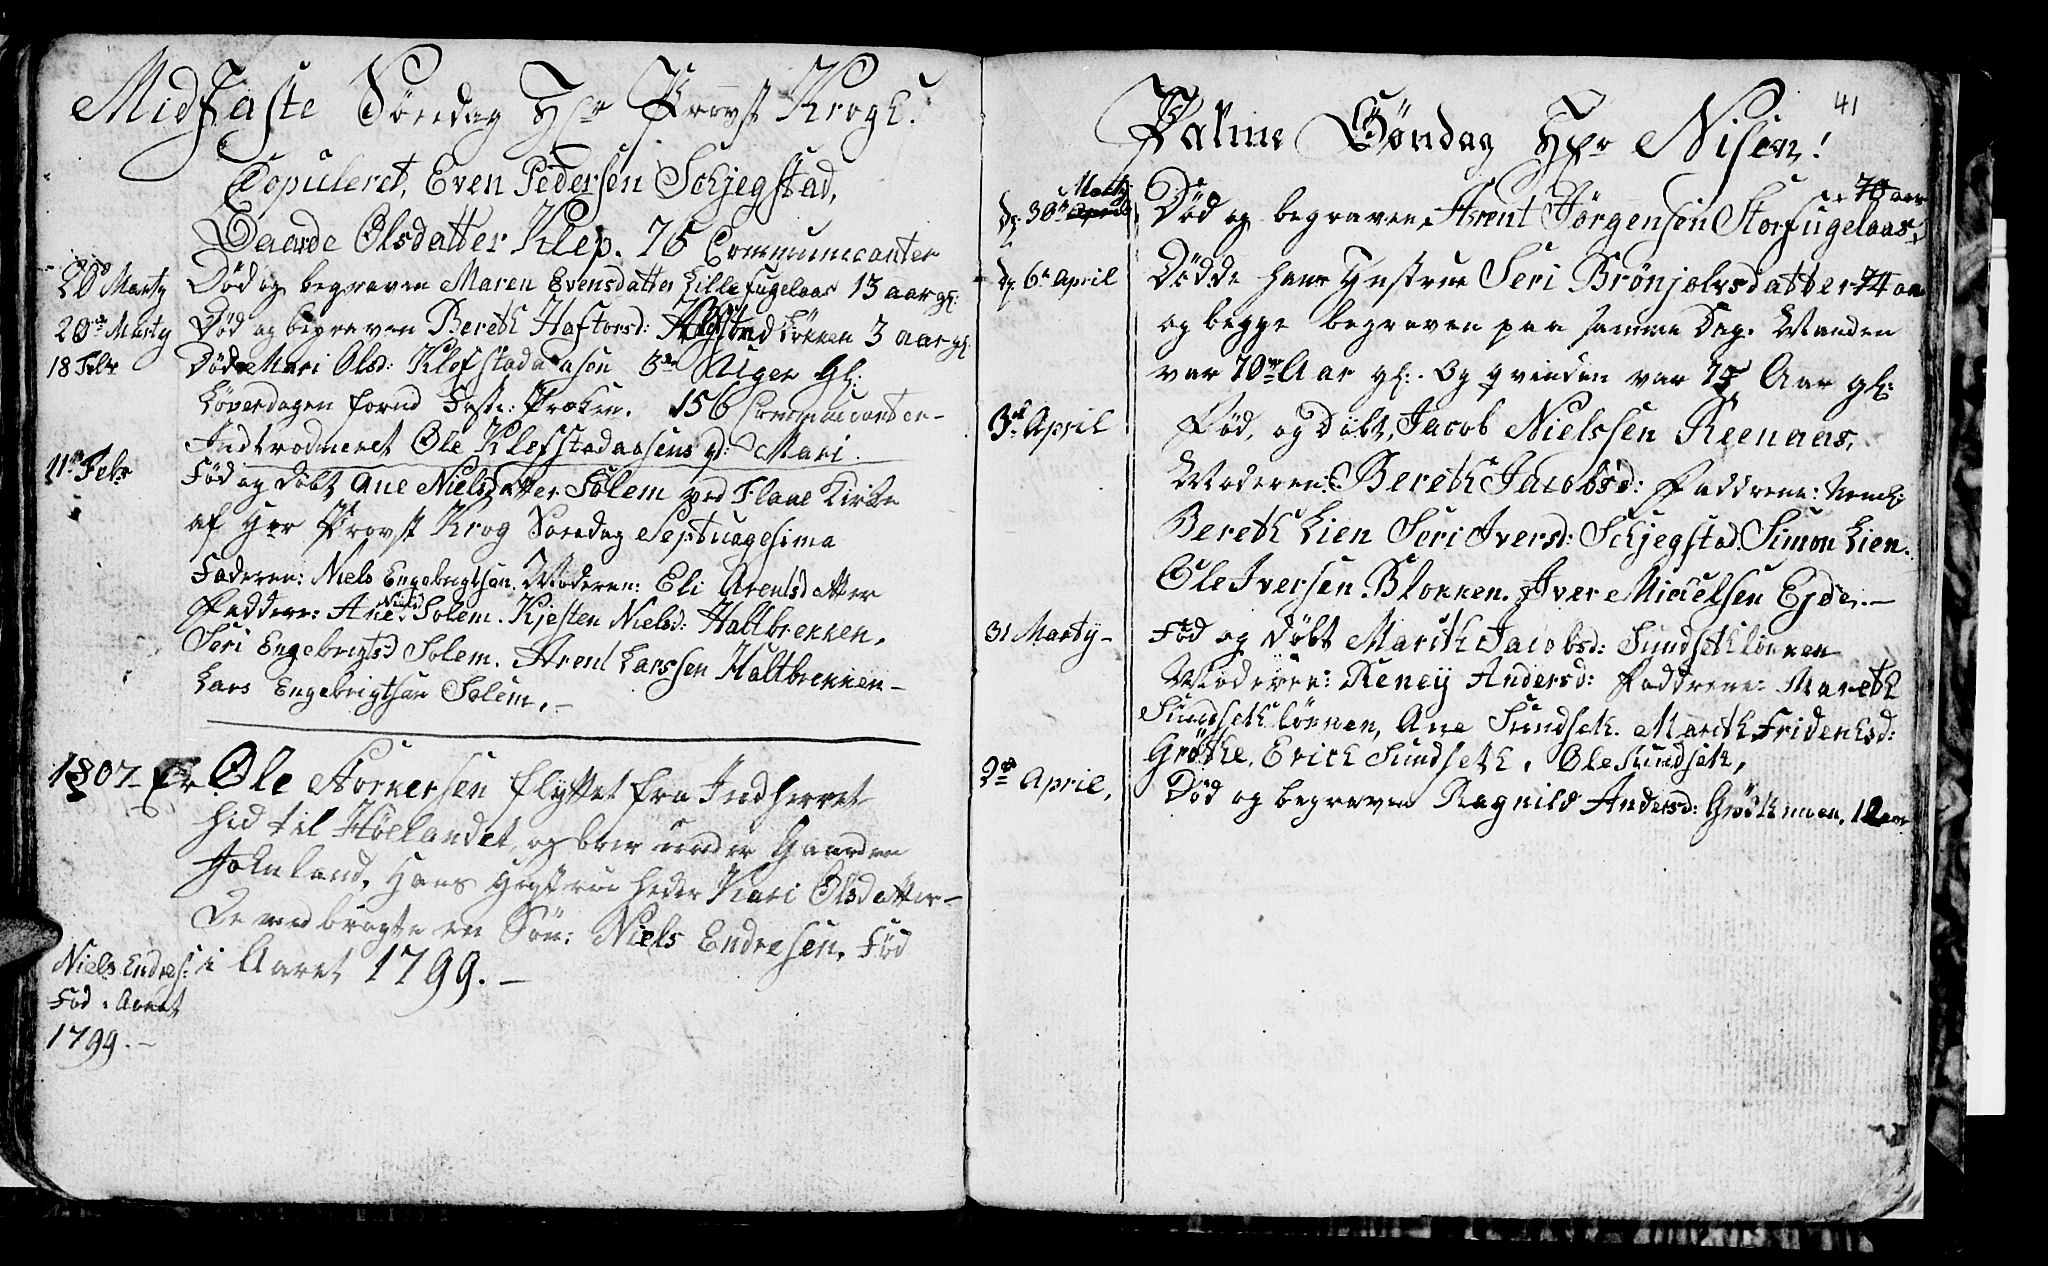 MidFaste Söndag Hr Provst Krogh.
Copuleret, Even Pedersen Schjegstad,
Baarde Olsdatter Klep. 76 Communicanter
20 Marty Död og begraven Maren Evensdatter Lillefugelaas 13 aar gl:
20de Marty Död og begraven Bereth Haftorsd: 3 aar gl:
18 Febr Döde Mari Olsd: Klefstadaasen 3de Uger gl:
Löverdagen forud Faste: Præken. 156 Communicanter –
Indtroduceret Ole Klefstadaasens q: Mari.
11te Febr Föd og döbt Ane Nielsdatter Solem ved Flaae Kirke
af Hr Provst Krog Söndag Septuagesima
Faderen: Niels Engebrigtsen. Moderen: Eli Arentsdatter
Faddere: Ane Nielsd Solem. Kjesten Nielsd: Haltbrekken,
Seri Engebrigtsd Solem. Arent Larssen Haltbrekken –
Lars Engebrigtsen Solem. –
1807 – Er Ole Storkersen flyttet fra Indherret
hid til Höelandet, og boer under Gaarden
Johnland, Hans Hustrue heder Kari Olsdatter –
De medbragte en Sön: Niels Endresen, Föd
i Aaret 1799. –
Niels Endres:
Föd i Aaret
1799. –
41
Palme Söndag Hr Nisen!
70 aar
Marty
d: 30te April Död og begraven Arent Jörgensen Storfugelaas
d: 6te April Dödde hans Hustrue Seri Brönjolvsdatter 74 aar
og begge begraven paa samme Dag. Manden
var 70ve Aar gl:. Og qvinden var 74 Aar gl:
3de April Föd, og Döbt, Jacob Nielssen Reenaas,
Moderen: Bereth Jacobsd: Faddrene: Neml:
Bereth Lien Seri Iversd: Schjegstad. Simon Lien.
Ole Iversen Blokken. Iver Mickelsen Ejde. –
31 Marty – Föd og Döbt Marith Jacobsd: Sundsethlökken
Moderen: Reney Andersd: Faddrene: Mareth
Sundsethlökken, Ane Sundseth. Marith Fridenksd:
Gröthe, Erich Sundseth, Ole Sundseth,
2de April, Död og begraven Ragnild Andersd: Gröthmoen, 12 aar